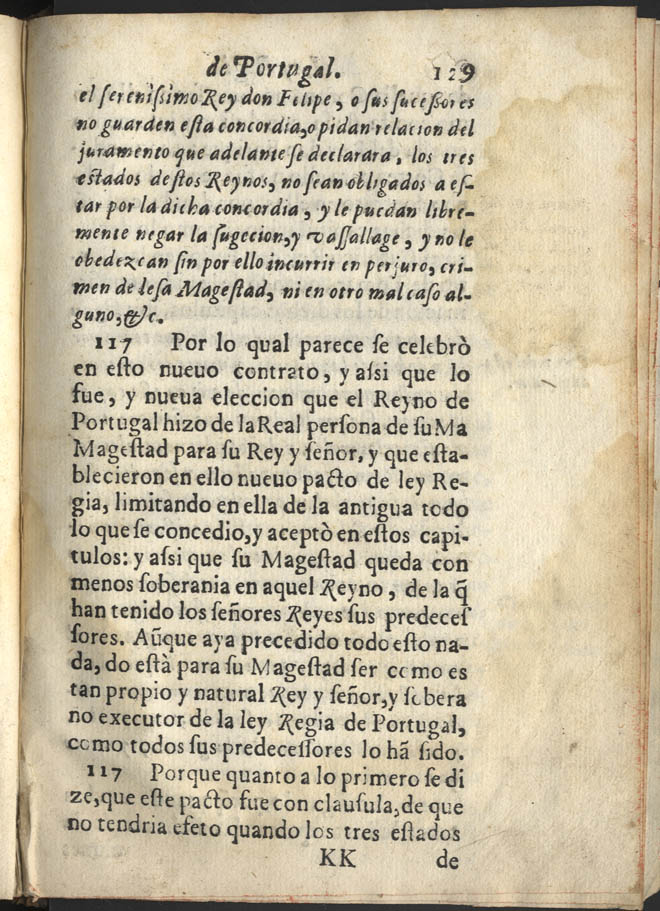 de Portugal. 129
el ſereniſsimo Rey don Felipe, o ſus ſuceſſores
no guarden eſta concordia, o pidan relacion del
juramento que adelante ſe declarara, los tres
eſtados deſtos Reynos, no ſean obligados a eſ-
tar por la dicha concordia, y le puedan libre-
mente negar la ſugecion, y vaſſallage, y no le
obedezcan ſin por ello incurrir en perjuro, cri-
men de leſa Mageſtad, ni en otro mal caſo al-
guno, &c.
117 Por lo qual parece ſe celebrò
en eſto nueuo contrato, y aſsi que lo
fue, y nueua eleccion que el Reyno de
Portugal hizo de la Real perſona de ſu Ma
Mageſtad para ſu Rey y ſeñor, y que eſta-
blecieron en ello nueuo pacto de ley Re-
gia, limitando en ella de la antigua todo
lo que ſe concedio, y aceptò en eſtos capi-
tulos: y aſsi que ſu Mageſtad queda con
menos ſoberania en aquel Reyno, de la q̃
han tenido los ſeñores Reyes ſus predeceſ
ſores. Aũque aya precedido todo eſto na-
da, do eſtà para ſu Mageſtad ſer como es
tan propio y natural Rey y ſeñor, y ſobera
no executor de la ley Regia de Portugal,
como todos ſus predeceſſores lo hã ſido.
117 Porque quanto a lo primero ſe di
ze, que eſte pacto fue con clauſula, de que
no tendria efeto quando los tres eſtados
KK de